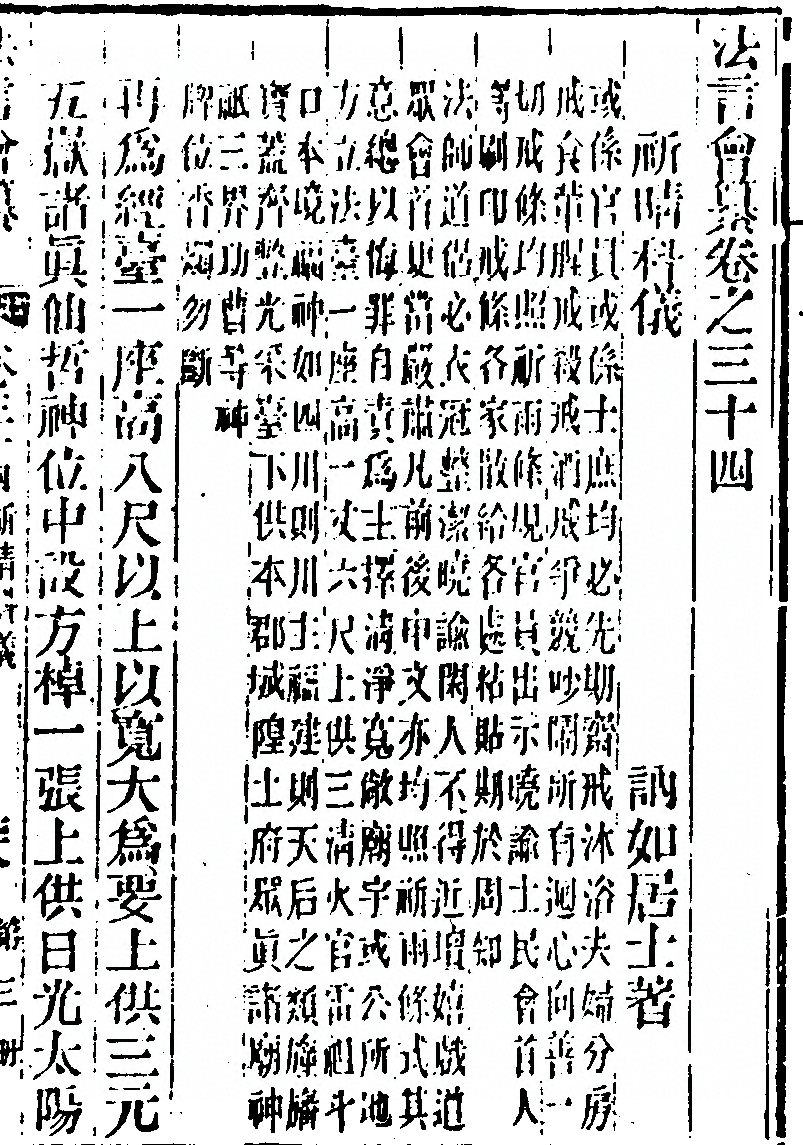 法言會纂卷之三十四
祈晴科儀 訥如居士著
或係官員或係士庶均必先期齋戒沐浴夫婦分房
戒食葷腥戒殺戒酒戒爭競吵鬧所有迴心向善一
切戒條均照祈雨條規官員出示曉諭士民會首人
等刷印戒條各家散給各處粘貼期於周知
法師道侶必衣冠整潔曉諭閑人不得近壇嬉戲道
眾會首更當嚴肅凡前後申文亦均照祈雨條式其
意總以悔罪自責爲主擇清淨寬敞廟宇或公所地
方立法臺一座高一丈六尺上供三清火官雷祖斗
口本境福神如四川則川主福建則天后之類
寶蓋齊整光采臺下供本郡城隍土府眾眞諸廟神
祇三界功曹等神
牌位香煙勿斷
再爲經臺一座高八尺以上以寬大爲要上供三元
五嶽諸眞仙哲神位中設方棹一張上供日光太陽